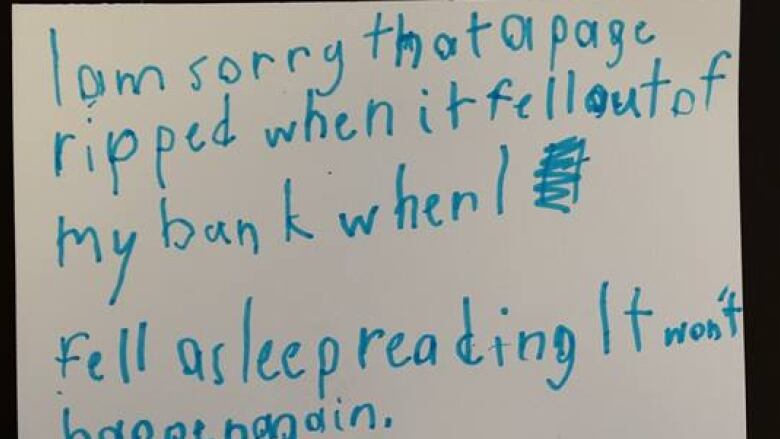 I am sorry that a page
ripped when it fell out of
my bank when I
Fell asleep reading It won't
happen again.